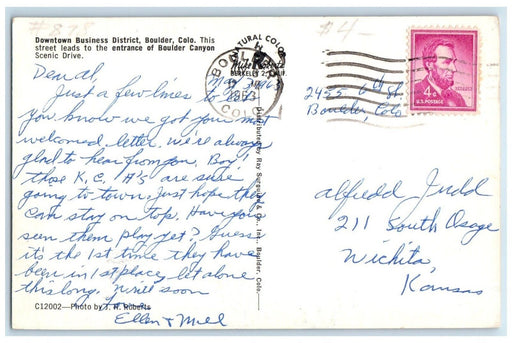 #878
$4-
Downtown Business District, Boulder, Colo. This
street leads to the entrance of Boulder Canyon
Scenic Drive.
NATURAL COLOR
Mike Roberts
BERKELEY 2, CALIF.
BOULDER
1963
COLO
4¢
U.S. POSTAGE
LINCOLN
May 3, 1963
2455 6th St
Boulder Colo
Dear Al,
Just a few lines to let
you know we got your most
welcomed letter. We're always
glad to hear from you. Boy!
those K.C. A's are sure
going to town, Just hope they
can stay on top. Have you
seen them play yet? Guess
it's the 1st time they have
been in 1st place, let alone
this long. Write soon
Ellen &
Alfredd Judd
211 South Osage
Wichita
Kansas
C12002—Photo by J. H. Roberts
Distributed by Ray Surguine & Co., Inc., Boulder, Colo.